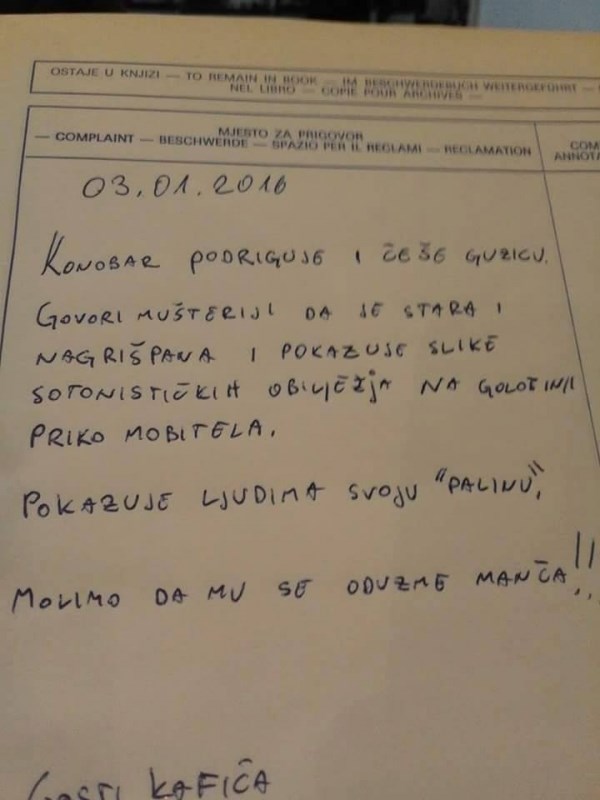 OSTAJE U KNJIZI — TO REMAIN IN BOOK — IM BESCHWERDEBUCH WEITERGEFÜHRT —
NEL LIBRO — COPIE POUR ARCHIVES —
MJESTO ZA PRIGOVOR
— COMPLAINT — BESCHWERDE — SPAZIO PER IL REGLAMI — RECLAMATION
COM
ANNOTA
03.01.2016
KONOBAR PODRIGUJE I ČEŠE GUZICU.
GOVORI MUŠTERIJI DA JE STARA I
NAGRIŠPANA I POKAZUJE SLIKE
SOTONISTIČKIH OBILJEŽJA NA GOLOTINJI
PRIKO MOBITELA.
POKAZUJE LJUDIMA SVOJU "PALINU".
MOLIMO DA MU SE ODUZME MANČA!!
GOSTI KAFIĆA